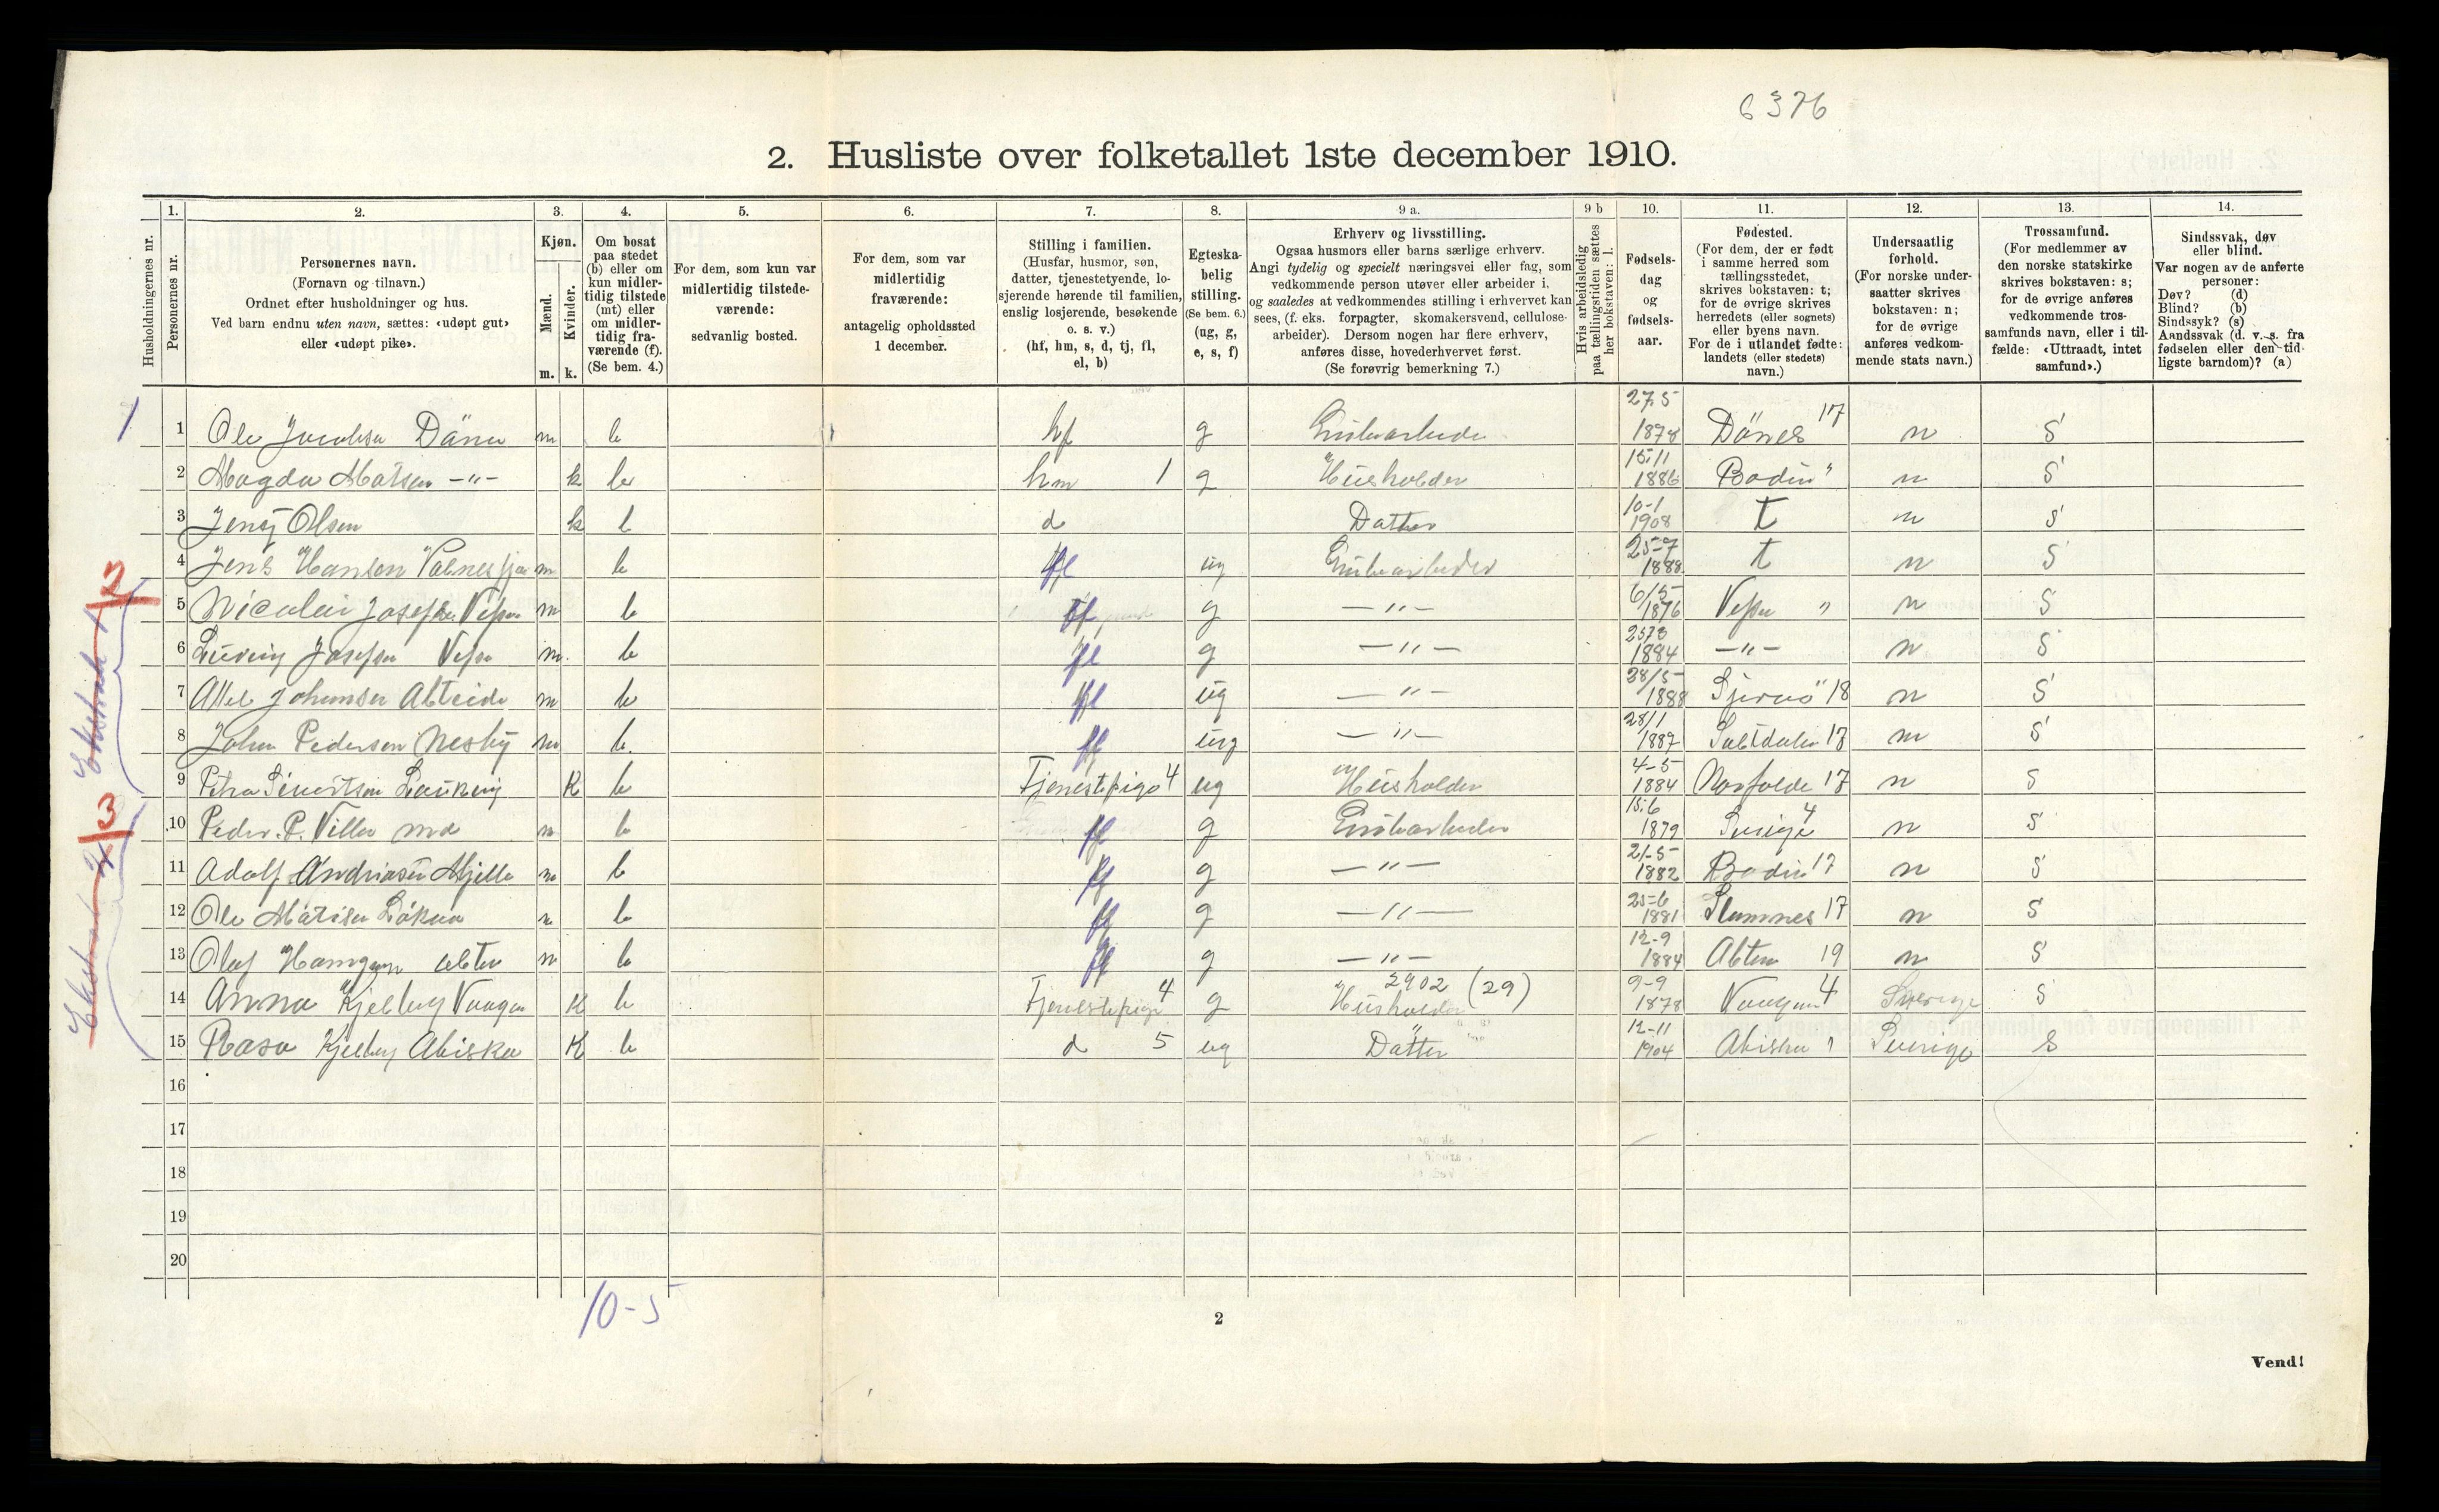 6376
2. Husliste over folketallet 1ste december 1910.
Husholdningernes nr.
1. Personernes nr.
2. Personernes navn. (Fornavn og tilnavn.) Ordnet efter husholdninger og hus. Ved barn endnu uten navn, sættes: «udøpt gut» eller «udøpt pike».
3. Kjøn. Mænd. m. Kvinder. k.
4. Om bosat paa stedet (b) eller om kun midlertidig tilstede (mt) eller om midlertidig fraværende (f). (Se bem. 4.)
5. For dem, som kun var midlertidig tilstedeværende: sedvanlig bosted.
6. For dem, som var midlertidig fraværende: antagelig opholdssted 1 december.
7. Stilling i familien. (Husfar, husmor, søn, datter, tjenestetyende, losjerende hørende til familien, enslig losjerende, besøkende o. s. v.) (hf, hm, s, d, tj, fl, el, b)
8. Egteskabelig stilling. (Se bem. 6.) (ug, g, e, s, f)
9 a. Erhverv og livsstilling. Ogsaa husmors eller barns særlige erhverv. Angi tydelig og specielt næringsvei eller fag, som vedkommende person utøver eller arbeider i, og saaledes at vedkommendes stilling i erhvervet kan sees, (f. eks. forpagter, skomakersvend, cellulosearbeider). Dersom nogen har flere erhverv, anføres disse, hovederhvervet først. (Se forøvrig bemerkning 7.)
9 b Hvis arbeidsledig paa tællingstiden sættes her bokstaven: l.
10. Fødselsdag og fødselsaar.
11. Fødested. (For dem, der er født i samme herred som tællingsstedet, skrives bokstaven: t; for de øvrige skrives herredets (eller sognets) eller byens navn. For de i utlandet fødte: landets (eller stedets) navn.)
12. Undersaatlig forhold. (For norske undersaatter skrives bokstaven: n; for de øvrige anføres vedkommende stats navn.)
13. Trossamfund. (For medlemmer av den norske statskirke skrives bokstaven: s; for de øvrige anføres vedkommende trossamfunds navn, eller i tilfælde: «Uttraadt, intet samfund».)
14. Sindssvak, døv eller blind. Var nogen av de anførte personer: Døv? (d) Blind? (b) Sindssyk? (s) Aandssvak (d. v. s. fra fødselen eller den tidligste barndom)? (a)
1 1 Ole m b hf g 27.5 1878 Dönes 17 n S
2 Magda Matsen -"- k b hm 1 g Husholder 15.11 1886 Bodin " n S
3 Jenij Olsen k b d Datter 10-1 1908 t n S
4 Jens Hansen m b fl ug 25-7 1888 t n S
5 Nicolai m b fl g -"- 6/5 1876 " n S
6 m. b fl g -"- 1884 -"- n S
7 Johansen m b fl ug -"- 28/5 1888 18 n S
8 Johan Pedersen Nesby m b. fl ug -"- 28/1 1887 Saltdalen 17 n S
9 Petra K b Tjenestepige 4 ug Husholder 4-5 1884 Norfolde 17 n S
10 Peder. P. m b fl g 15.6 1879 Sverige 4 n S
11 Adolf Andriasen m b fl g -"- 21-5 1882 Bodin 17 n S
12 Ole b fl g -"- 25-6 1881 17 n S
13 Olaf m b fl g -"- 12-9 1884 19 n S
14 Anna Kjelberg K b Tjenestepige 4 g Husholder 2902 (29) 9-9 1878 4 Sverige S
15 Kjelberg Abisko K b d 5 ug Datter 12-11 1904 Abisko " Sverige S
16
17
18
19
20
2
3
10-5
2
Vend!